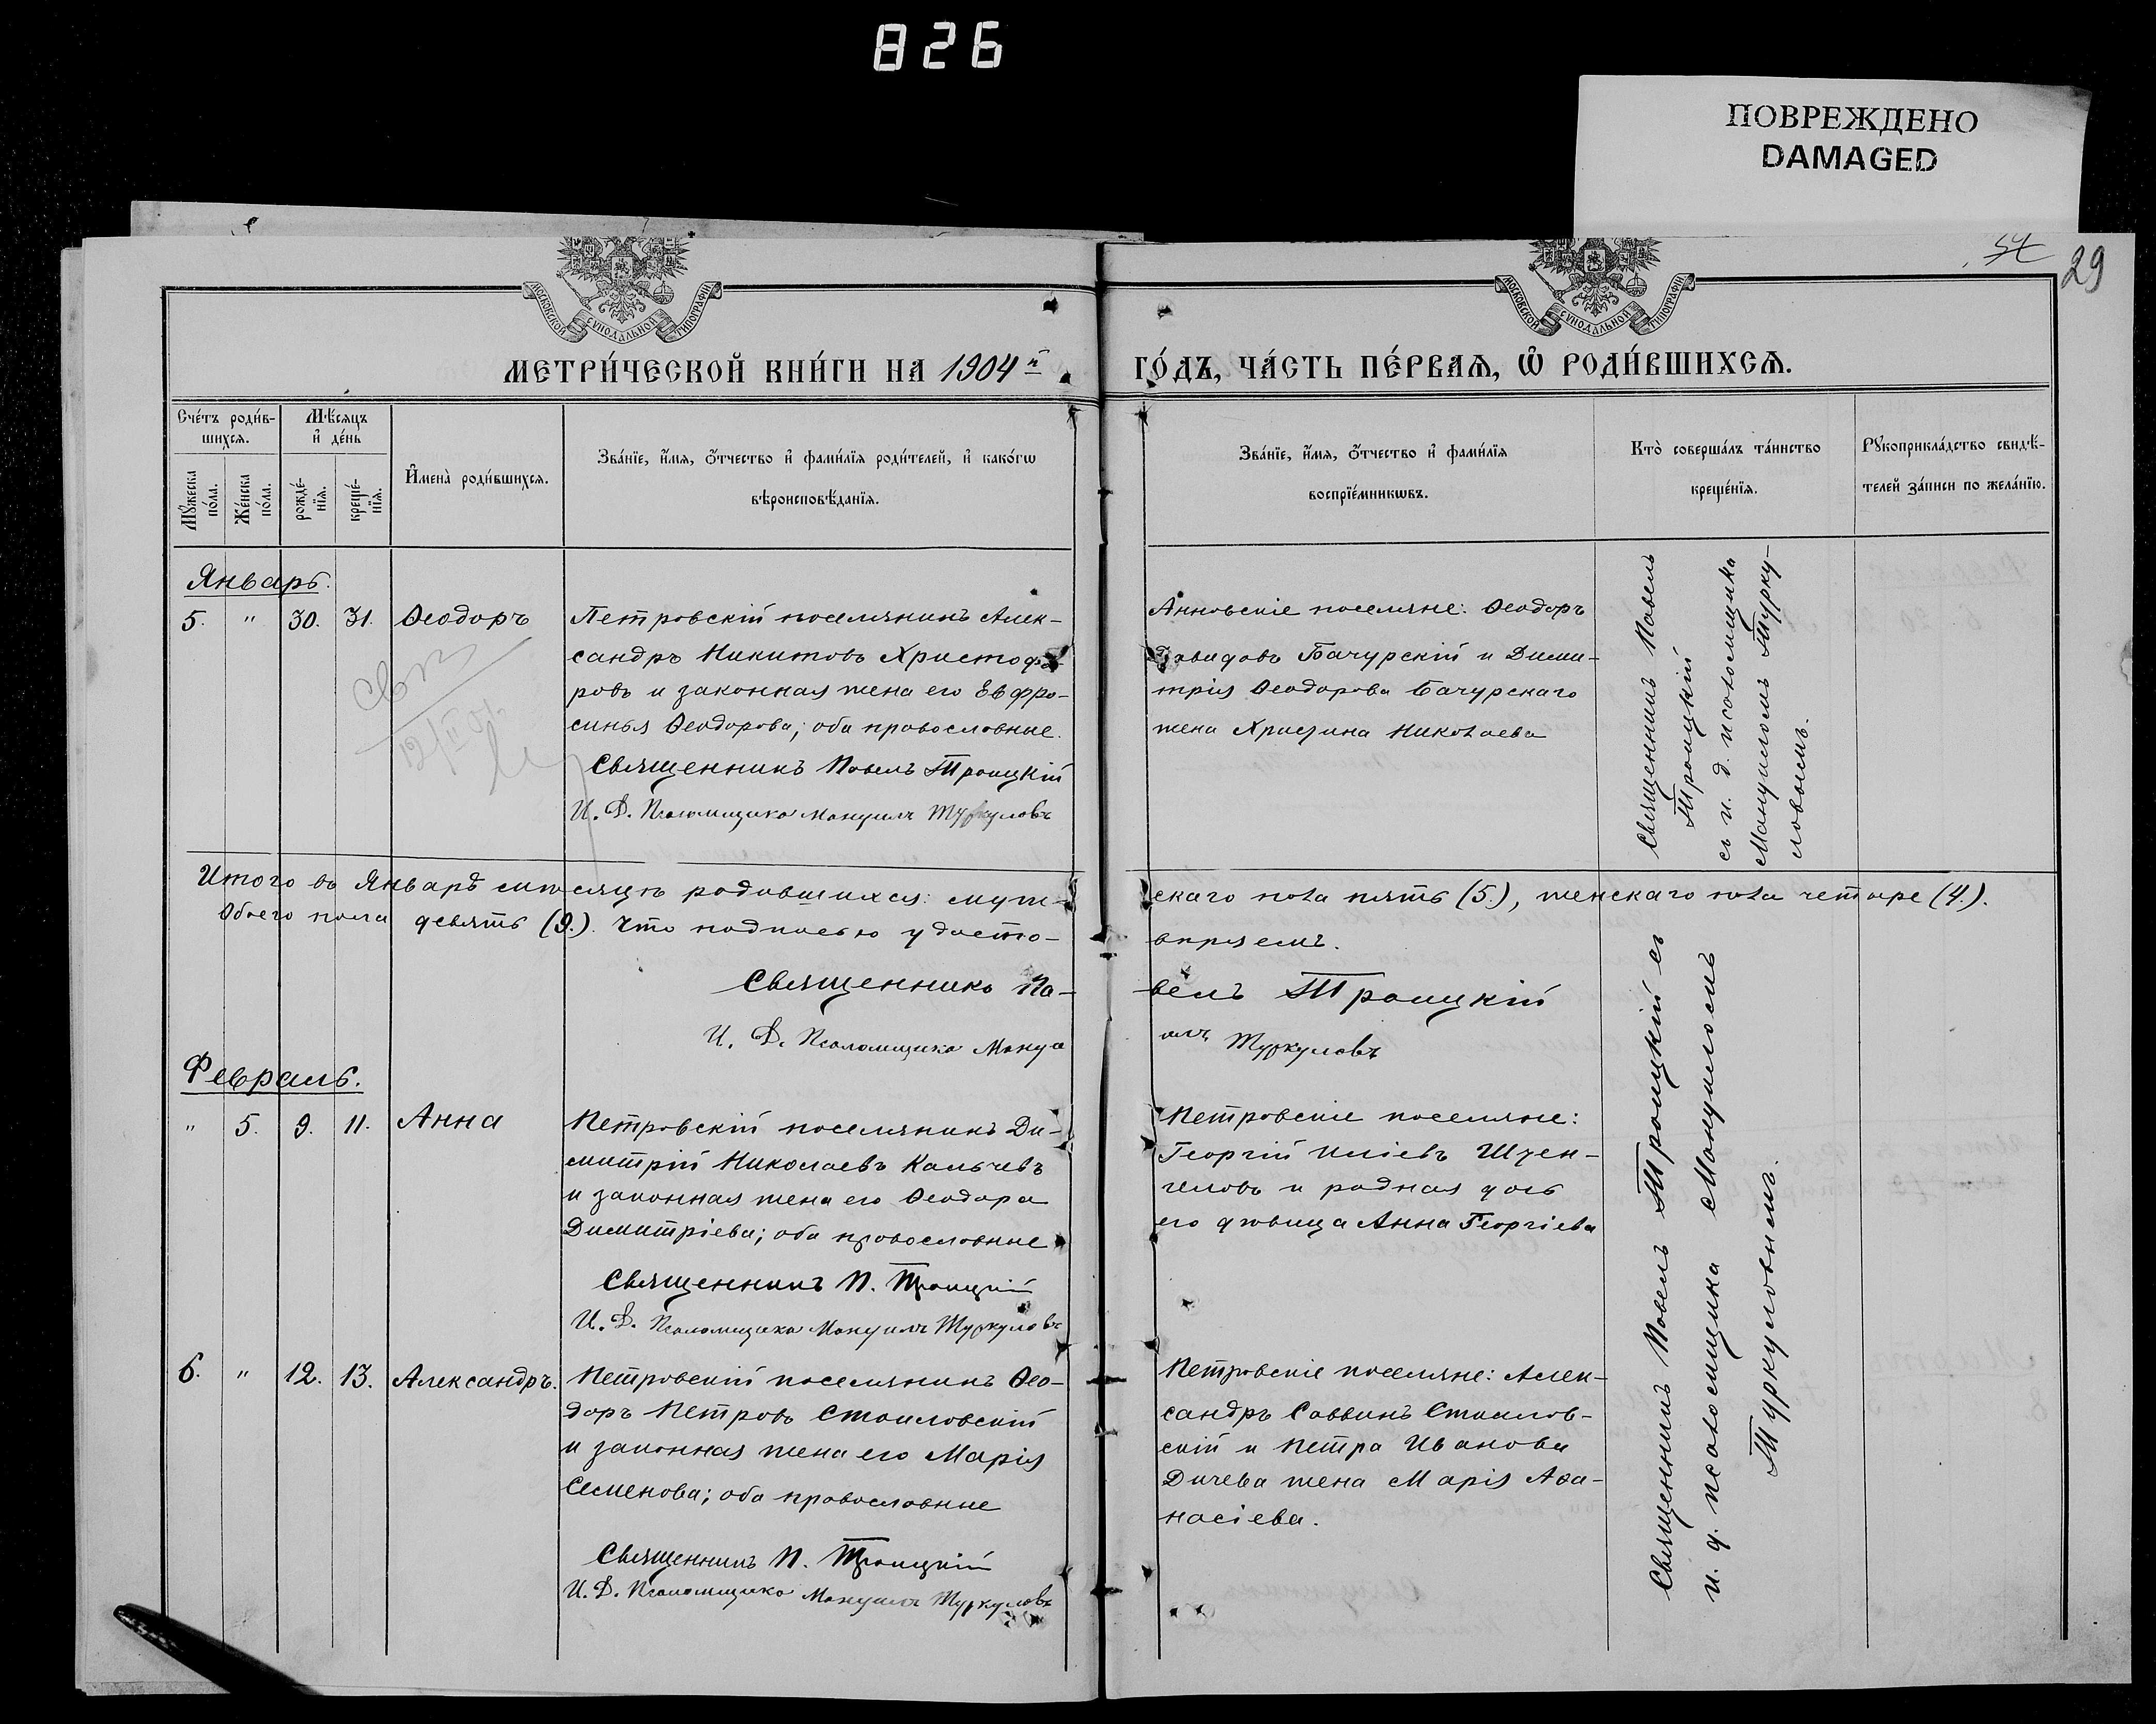 826
ПОВРЕЖДЕНО
DAMAGED
29
МОСКОВСКОЙ СѴНОДАЛЬНОЙ ТИПОГРАФІИ
МОСКОВСКОЙ СѴНОДАЛЬНОЙ ТИПОГРАФІИ
МЕТРИ́ЧЕСКОЙ КНИ́ГИ НА 1904й
ГО́ДЪ, ЧА́СТЬ ПЕ́РВАѦ, Ѡ҆ РОДИ́ВШИХСѦ.
Сче́тъ роди́в-
шихсѧ.
Мѣ́сѧцъ
и҆ де́нь
Мꙋ́жеска
по́ла.
Же́нска
по́ла.
рожде́-
нїѧ.
креще́-
нїѧ.
И҆мена̀ роди́вшихсѧ.
Зва́нїе, и҆́мѧ, ѻ҆́тчество и҆ фами́лїѧ роди́телей, и҆ како́гѡ
вѣроисповѣ́данїѧ.
Зва́нїе, и҆́мѧ, ѻ҆́тчество и҆ фами́лїѧ
воспрїе́мникѡвъ.
Кто̀ соверша́лъ та́инство
креще́нїѧ.
Рꙋкоприкла́дство свидѣ́-
телей за́писи по жела́нїю.
Январь.
5. " 30. 31. Ѳеодоръ
Петровскій поселянинъ Алек-
сандръ Никитовъ Христофо-
ровъ и законная жена его Евфро-
синья Ѳеодорова; оба православные.
Священникъ Павелъ Троицкій
И. Д. Псаломщика Мануилъ Туркуловъ
Анновскіе поселяне: Ѳеодоръ
Давидовъ Бачурскій и Дими-
трія Ѳеодорова Бачурскаго
жена Христина Николаева
Священникъ Павелъ
Троицкій
съ и. д. псаломщика
Мануиломъ Турку-
ловымъ.
Итого въ Январѣ мѣсяцѣ родившихся: муж-
скаго пола пять (5.), женскаго пола четыре (4.).
Обоего пола девять (9.). Что подписью удосто-
вѣряемъ.
Священникъ Па-
велъ Троицкій
И. Д. Псаломщика Мануи
илъ Туркуловъ
Февраль.
" 5. 9. 11. Анна
Петровскій поселянинъ Ди-
митрій Николаевъ Кальчевъ
и законная жена его Ѳеодора
Димитріева; оба православные
Священникъ П. Троицкій
И. Д. Псаломщика Мануилъ Туркуловъ
Петровскіе поселяне:
Георгій Иліевъ Шрен-
геловъ и родная дочь
его дѣвица Анна Георгіева
6. " 12. 13. Александръ.
Петровскій поселянинъ Ѳео-
доръ Петровъ Стоиловскій
и законная жена его Марія
Семенова; оба православные
Священникъ П. Троицкій
И. Д. Псаломщика Мануилъ Туркуловъ
Петровскіе поселяне: Алек-
сандръ Саввинъ Стоилов-
скій и Петра Иванова
Дичева жена Марія Аѳа-
насіева.
Священникъ Павелъ Троицкій съ
и. д. псаломщика Мануиломъ
Туркуловымъ.